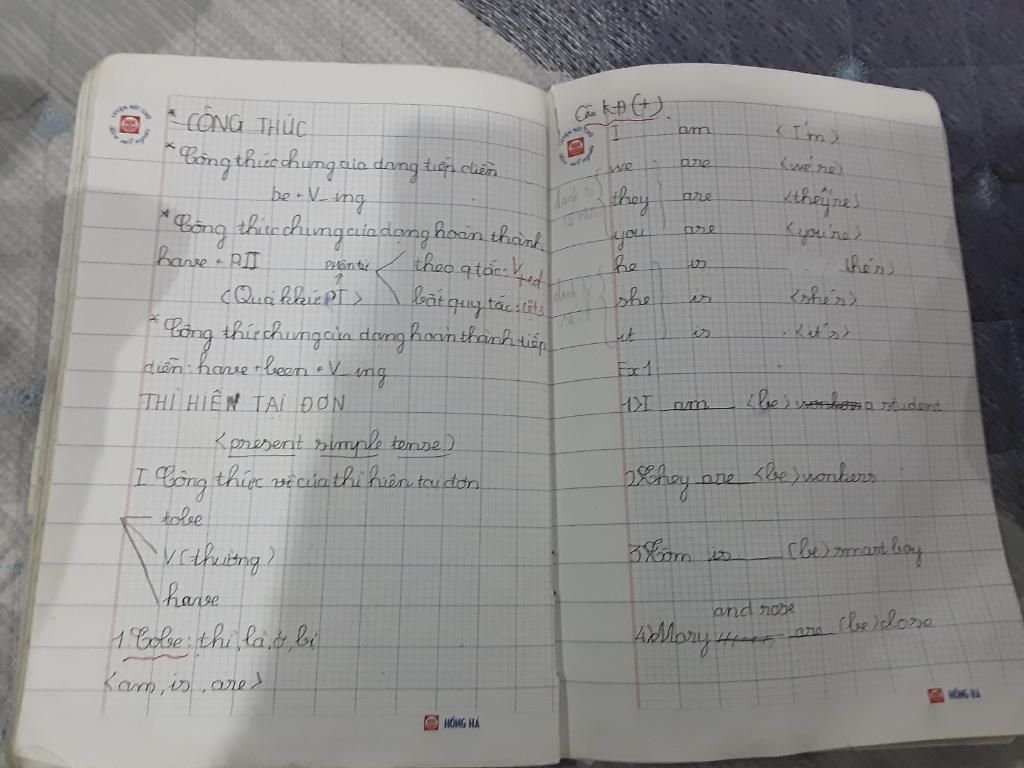 * CÔNG THỨC
* Công thức chung của dạng tiếp diễn:
be + V_ing
* Công thức chung của dạng hoàn thành
have + PII
phân từ
theo q tắc: V_ed
(Quá khứ PI)
bất quy tắc:
* Công thức chung của dạng hoàn thành tiếp
diễn: have + been + V_ing
THÌ HIỆN TẠI ĐƠN
(present simple tense)
I Công thức với của thì hiện tại đơn
tobe
V (thường)
have
1. Tobe: thì, là, ở, bị
<am, is, are>
HỒNG HÀ
Câu KĐ (+).
I am <I'm>
we are <we're>
they are <they're>
you are <you're>
he is he's>
she is <she's>
it is <it's>
Ex1
1) I am (be) a student
2) They are (be) workers
3) Tom is (be) smart boy
and rose
4) Mary are (be) close
HỒNG HÀ